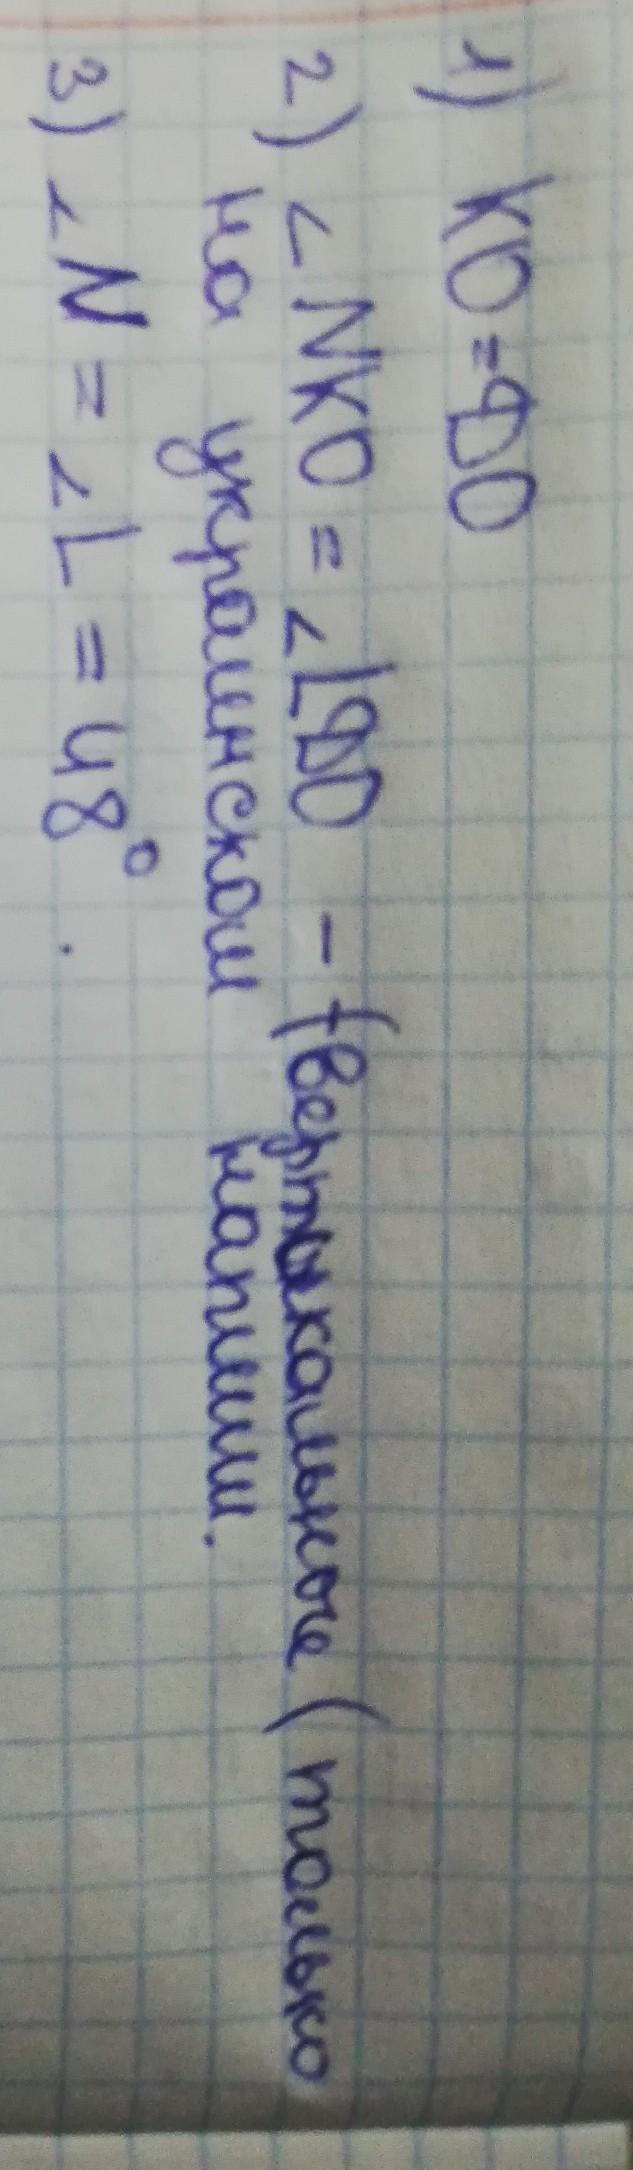 1) KO=DO
2) ∠NKO = ∠LDO - (вертикальные (только
на украинском напиши.
3) ∠N = ∠L = 48°.